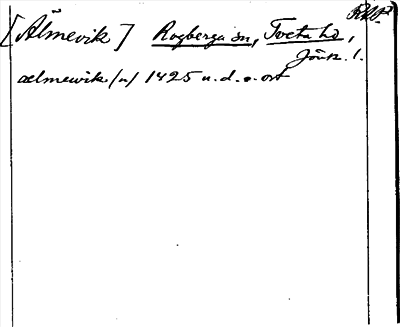 [Älmevik] Rogberga sn, Tveta hd,
Jönk. l.
aelmewik /u/ 1425 u.d.o. ort